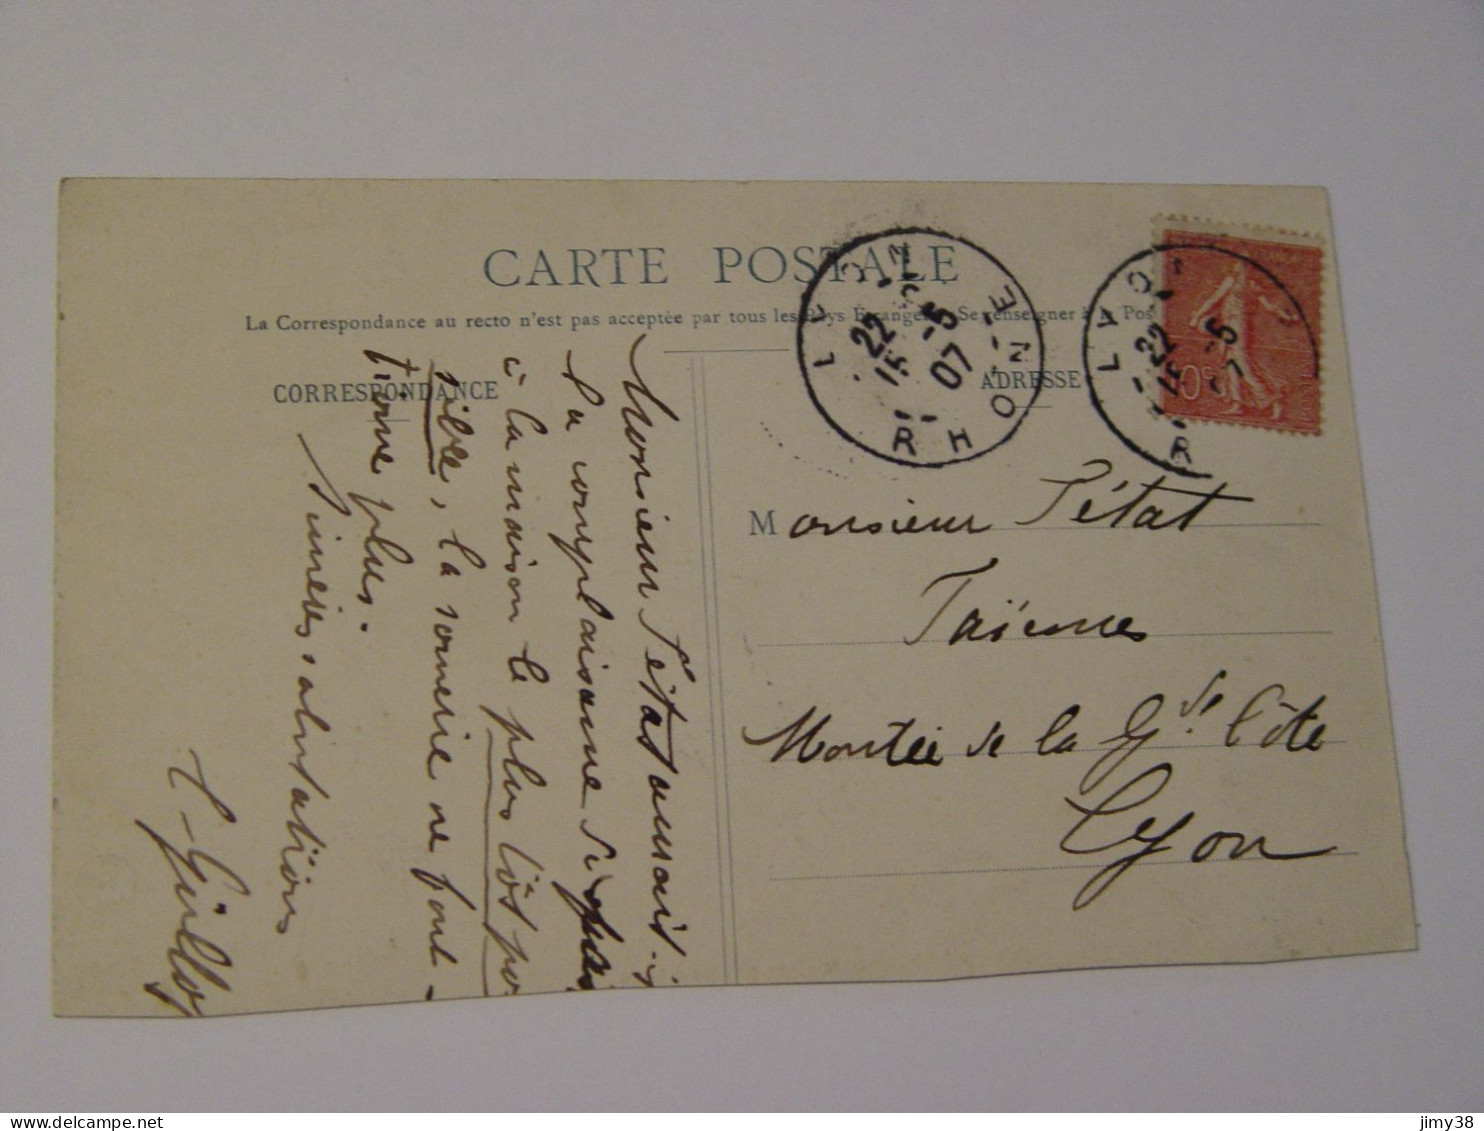 CARTE POSTALE
La Correspondance au recto n'est pas acceptée par tous les Pays Etrangers. Se renseigner à la Pos
CORRESPONDANCE
ADRESSE
LYON
RHONE
22
15
-5
07
LYO
R
22
15
-5
07
10c
Monsieur Pétat
Montée de la Gde Côte
Lyon
Monsieur Pétat aurait-
la complaisance de
à la maison le plus tôt po
sible, la sonnerie ne fonc-
tionne plus.
Sincères salutations
jimy38